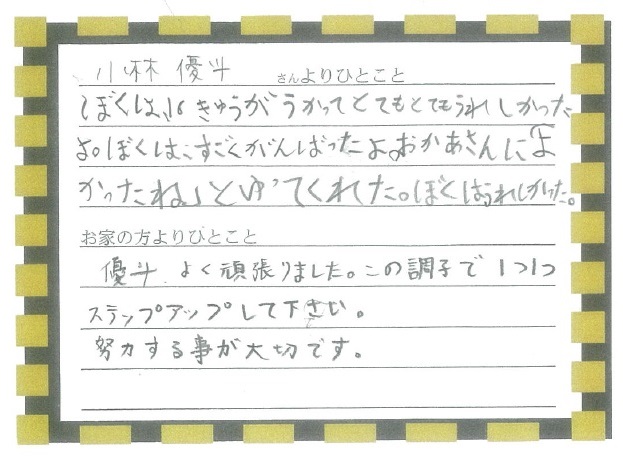 小林 優斗 さんよりひとこと
ぼくは、8きゅうがうかってとてもとてもうれしかった
よ。ぼくは、すごくがんばったよ。おかあさんに「よ
かったね」とゆってくれた。ぼくはうれしかった。
お家の方よりひとこと
優斗 よく頑張りました。この調子で1つ1つ
ステップアップして下さい。
努力する事が大切です。